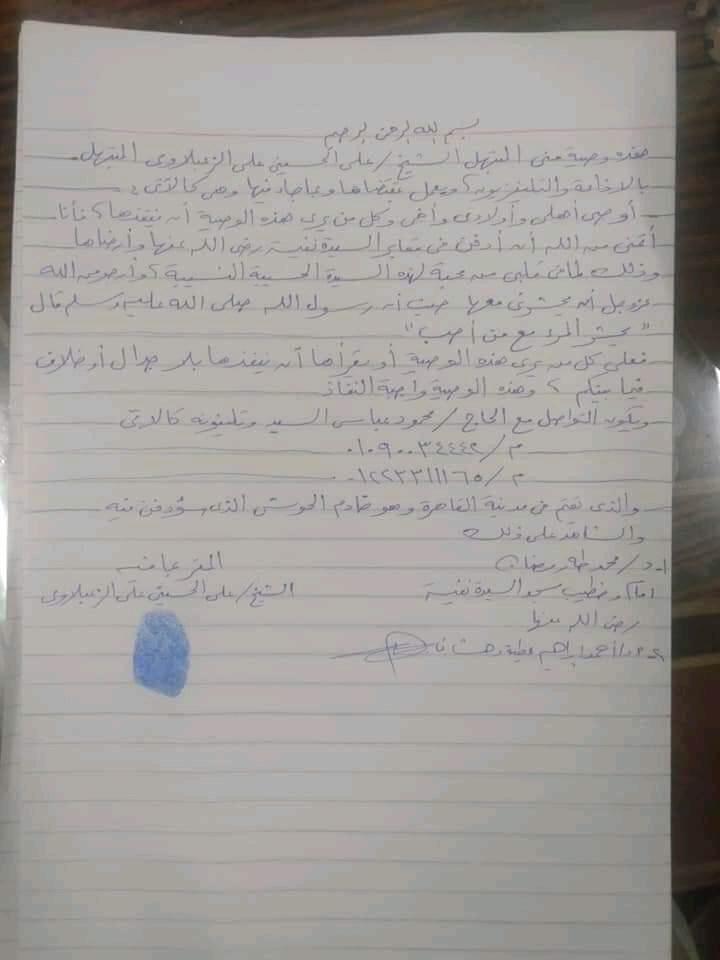 بسم الله الرحمن الرحيم
هذه وصية منى المبتهل الشيخ/ على الحسينى على الزعبلاوى المبتهل
بالاذاعة والتليفزيون، ويعمل بمقتضاها وبما جاء فيها وهى كالآتى :
أوصى أهلى وأولادى وأخى وكل من يرى هذه الوصية أن ينفذها، فأنا
أتمنى من الله أن أدفن فى مقابر السيدة نفيسة رضى الله عنها وأرضاها
وذلك لما فى قلبى من محبة لهذه السيدة الحسيبة النسيبة، وأرجو من الله
عزوجل أن يحشرنى معها حيث أن رسول الله صلى الله عليه وسلم قال
"يحشر المرء مع من أحب"
فعلى كل من يرى هذه الوصية أو يقرأها أن ينفذها بلا جدال أو خلاف
فيما بينكم، وهذه الوصية واجبة النفاذ
ويكون التواصل مع الحاج/ محمود عباس السيد وتليفونه كالاتى
م/ ٠١٠٩٠٠٣٤٤٤٢
م/ ٠١٢٢٣٣١١١٦٥
والذى يقيم فى مدينة القاهرة وهو خادم الحوش الذى سؤدفن فيه
والشاهد على ذلك
١- د/ محمد طه رمضان المقر بما فيه
امام وخطيب مسجد السيدة نفيسة الشيخ/ على الحسينى على الزعبلاوى
رضى الله عنها
٢- أحمد ابراهيم عطية